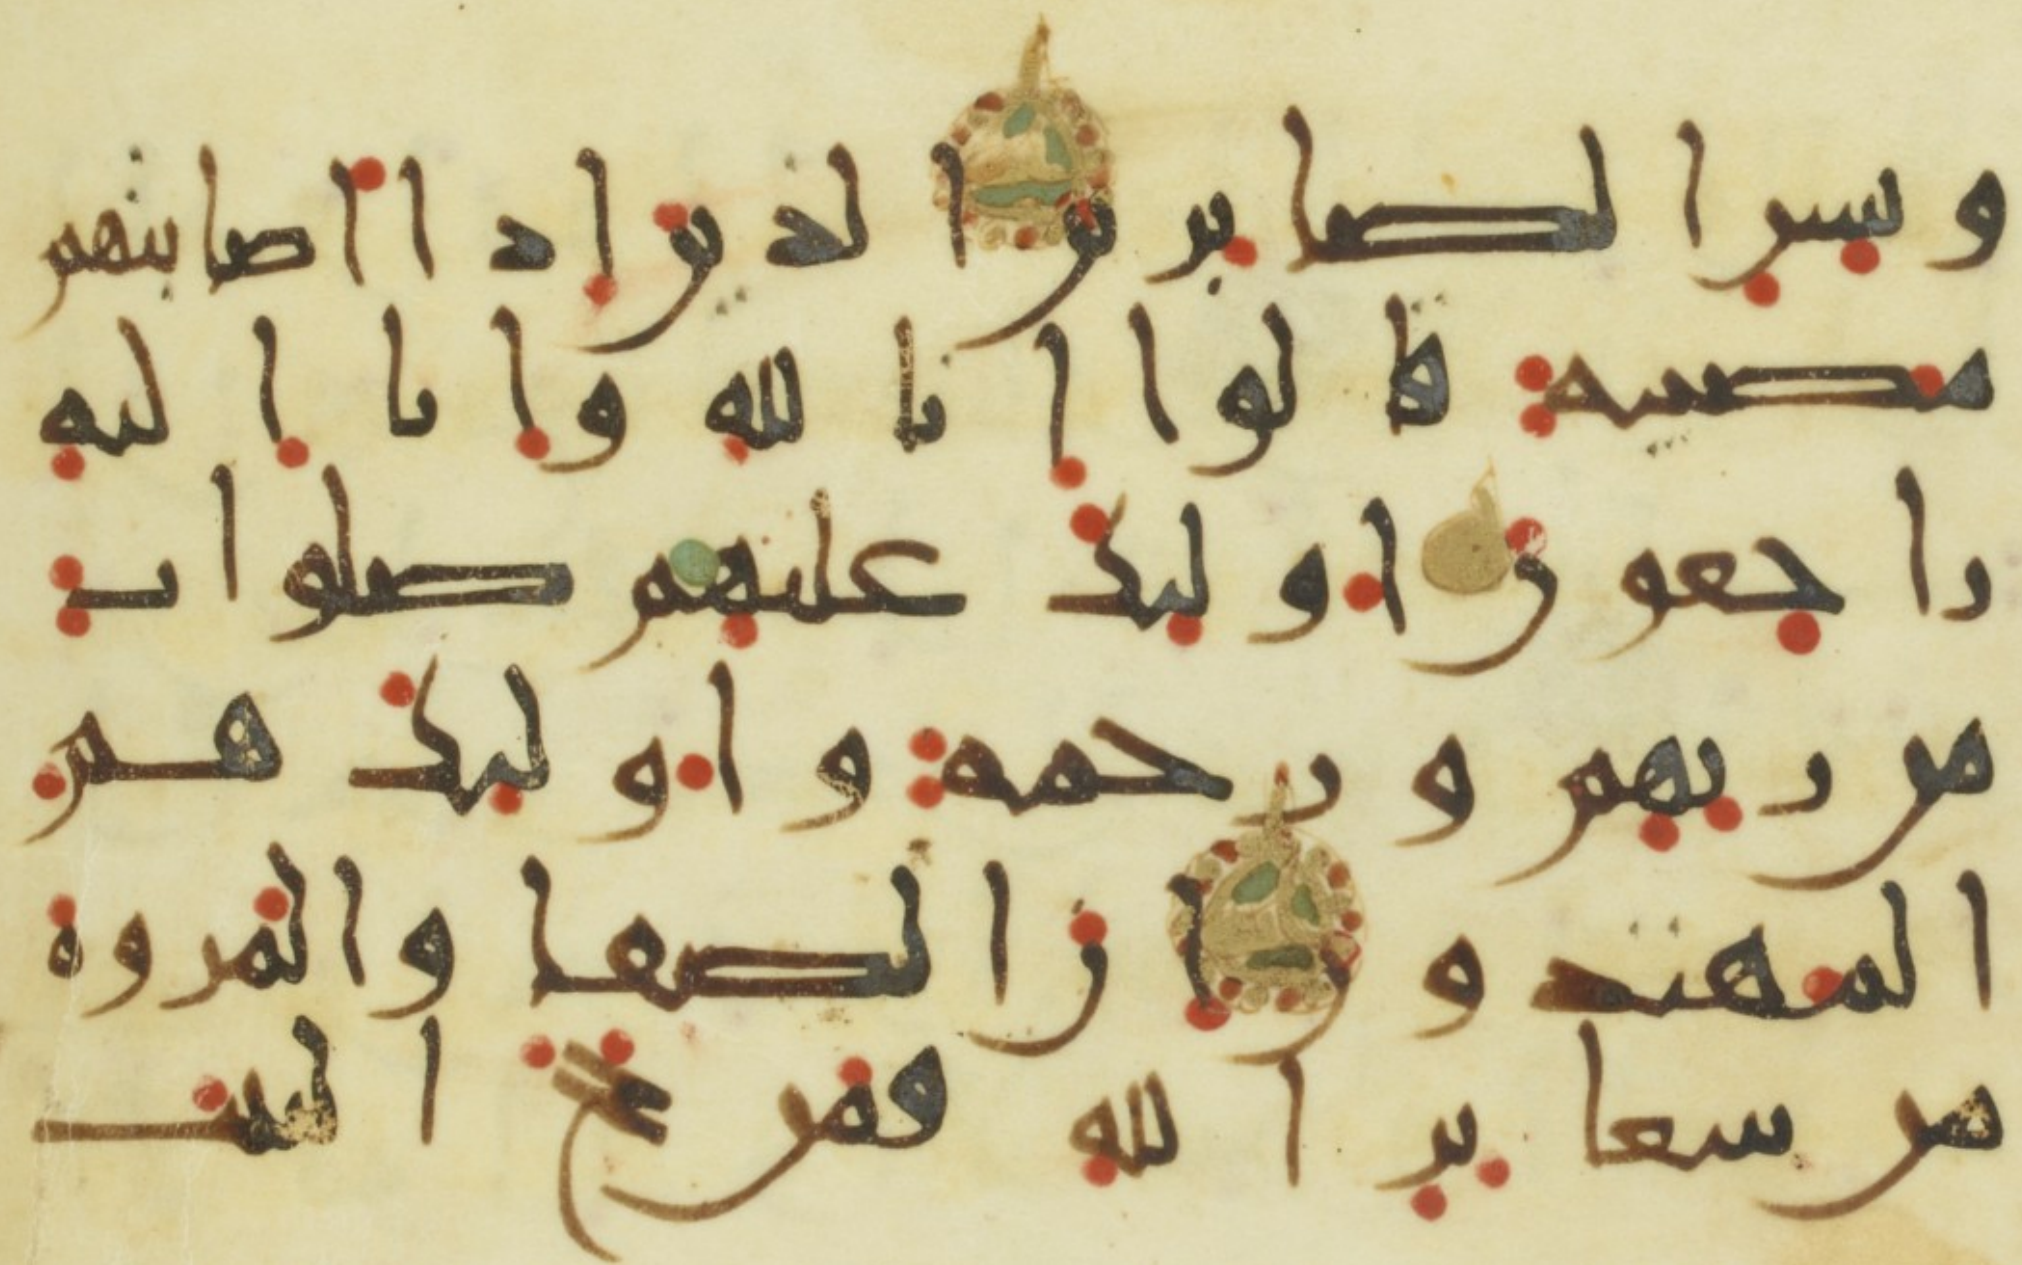 وبشر الصابرين الذين اذا اصابتهم
مصيبة قالوا انا لله وانا اليه
راجعون اوليك عليهم صلوات
من ربهم ورحمة واوليك هم
المهتدون ان الصفا والمروة
من شعاير الله فمن حج البيت